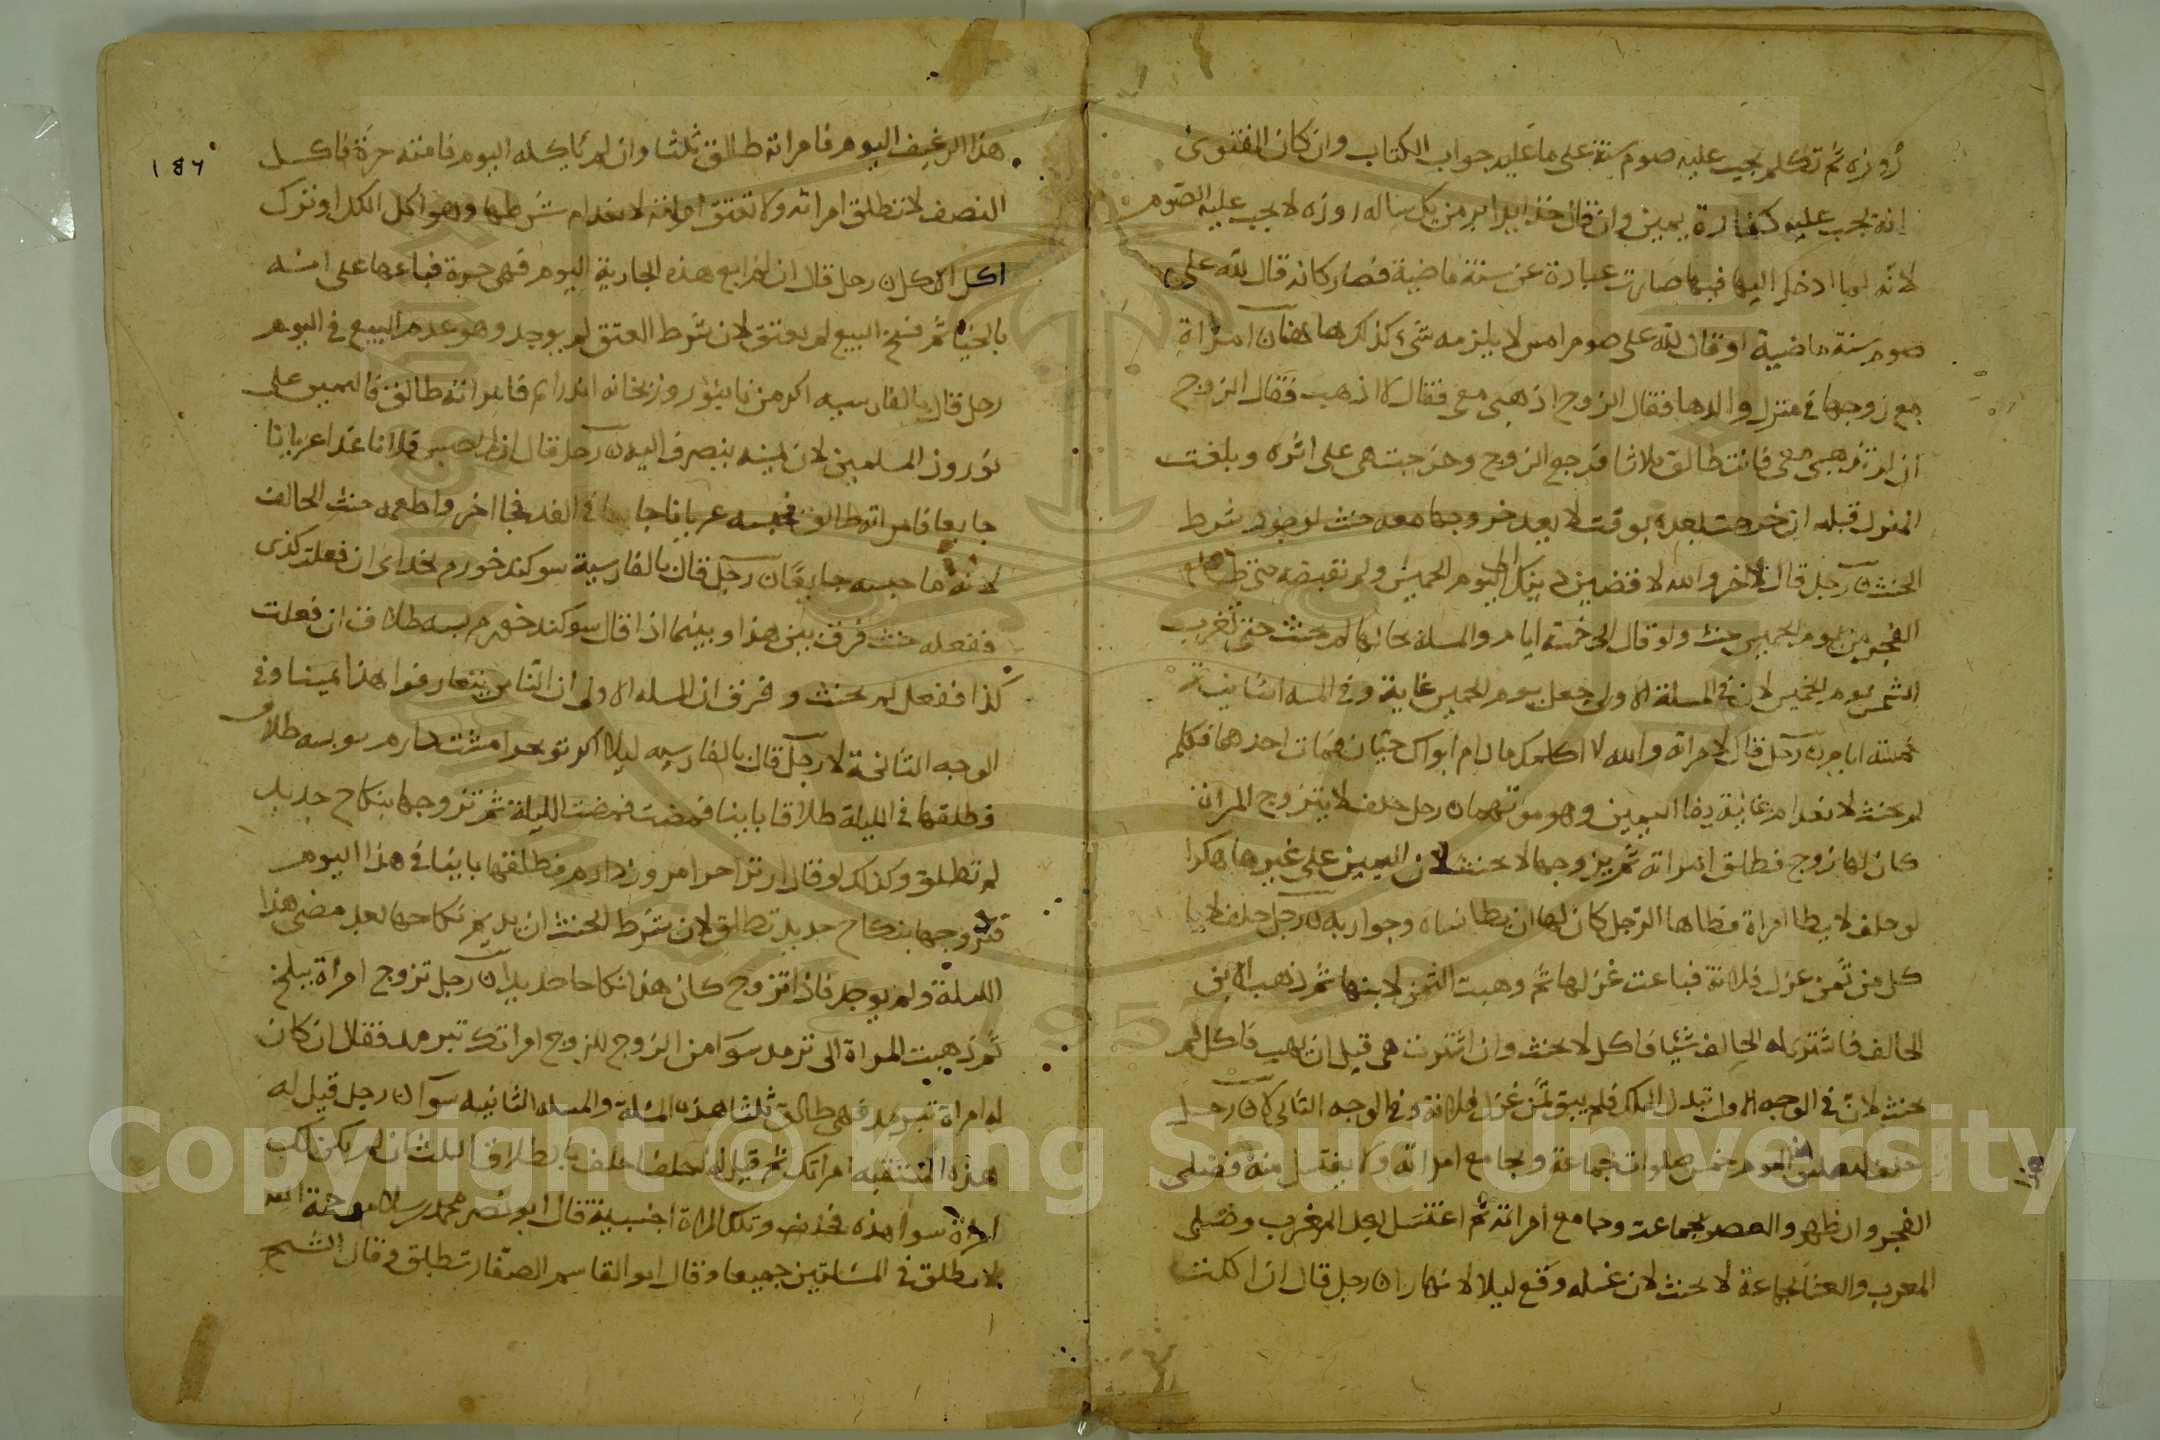 روزه ثم تكلم يجب عليه صوم سنة على ما عليه جواب الكتاب وان كان الفتوى
انه يجب عليه كفارة يمين وان قال خذايرا بر من يك ساله روزه لا يجب عليه الصوم
لانه لما ادخل اليها فيها صارت عبارة عن سنة ماضية فصار كانه قال لله على
صوم سنة ماضية او قال لله على صوم امس لا يلزمه شئ كذلك هاهنا ن امراة
مع زوجها في منزل والدها فقال الزوج اذهبي معي فقال لا اذهب فقال الزوج
ان لم تذهبي معي فانت طالق ثلاثا فرجع الزوج وخرجت هي على اثره وبلغت
المنزل قبله ان خرجت بعده بوقت لا يعد خروجها معه حنث لوجود شرط
الحنث ن رجل قال لاخر والله لا قضين دينك الى يوم الخميس ولم يقبضه حتى طلع
الفجر من يوم الخميس حنث ولو قال الى خمسة ايام والمسلة بحالها لم يحنث حتى تغرب
الشمس يوم الخميس لان في المسلة الاولى جعل يوم الخميس غاية وفي المسله الثانية
خمسة ايام ن رجل قال لامراته والله لا اكلمك ما دام ابواك حيان فمات احدهما فكلم
لم يحنث لانعدام غاية بقا اليمين وهو موتهما ن رجل حلف لا يتزوج امراة
كان لها زوج فطلق امراته ثم يزوجها لا يحنث لان اليمين على غيرها هكذا
لو حلف لا يطا امراة وطاها الرجل كان لها ان يطا نساه وجواريه ن رجل حلف لا يا
كل من ثمن غزل فلانة فباعت غزلها ثم وهبت الثمن لابنها ثم ذهب الابن
الحالف فاشترى له الحالف شيا فاكل لا يحنث وان اشترت هي قبل ان يهب فاكل لم
يحنث لان في الوجه الاول تبدل الملك فلم يبق ثمن غزل فلانة وفي الوجه الثاني لا ن رجل
حلف ليصلين اليوم خمس صلوات بجماعة ويجامع امراته ولا يغتسل منه فصلى
الفجر والظهر والعصر بجماعة وجامع امراته ثم اغتسل بعد المغرب وصلى
المغرب والعشا بجماعة لا يحنث لان غسله وقع ليلا لا نهارا ن رجل قال ان اكلت
187
هذا الرغيف اليوم فامراته طالق ثلثا وان لم ياكله اليوم فامته حرة فاكل
النصف لا تطلق امراته ولا تعتق امته لانعدام شرطها وهو اكل الكل او ترك
اكل الكل ن رجل قال ان لم ابع هذه الجارية اليوم فهي حرة فباعها على انه
بالخيار ثم فسخ البيع لم يعتق لان شرط العتق لم يوجد وهو عدم البيع في اليوم
رجل قال بالفارسيه اكر من تا بنوروز بخانه اندرايم فامراته طالق فاليمين على
نوروز المسلمين لان نيته ينصرف اليه ن رجل قال ان لم احبس فلانا غدا عريانا
جايعا فامراته طالق فحبسه عريانا جايعا في الغد فجا اخر واطعمه حنث الحالف
لانه ما حبسه جايعا ن رجل قال بالفارسية سوكند خورم بخداى ان فعلت كذى
ففعله حنث فرق بين هذا وبينما اذا قال سوكند خورم بسه طلاق ان فعلت
كذا ففعل لم يحنث وفرق ان المسله الاولى ان الناس يتعارفوا هذا يمينا وفي
الوجه الثانية لا رجل قال بالفارسيه ليلا اكر تو بجز امشت دارم سوبسه طلاق
وطلقها في الليلة طلاقا باينا فمضت الليلة ثم تزوجها بنكاح جديد
لم تطلق وكذلك لو قال ار ترا جز امروز دارم فطلقها باينا في هذا اليوم
فتزوجها بنكاح جديد تطلق لان شرط الحنث ان يديم نكاحها بعد مضى هذا
الليلة ولم يوجد فاذا تزوج كان هذا نكاحا جديدا ن رجل تزوج امراة ببلخ
ثم ذهبت المراة الى ترمد سوا من الزوج للزوج امراتك تبرمد فقال ان كان
له امراة تبرمد فهي طالق ثلثا هذه المسلة والمسله الثانيه سوا ن رجل قيل له
هذه المتنقبه امراتك ثم قيل له احلف فحلف بالطلاق الثلث ان لم يكن لك
امراة سوا هذه فحلف وتلك المراة اجنبية قال ابو نصر محمد بن سلام رحمة الله
لا تطلق في المسئلتين جميعا وقال ابو القاسم الصفار تطلق وقال الشيخ
Copyright © King Saud University
1957